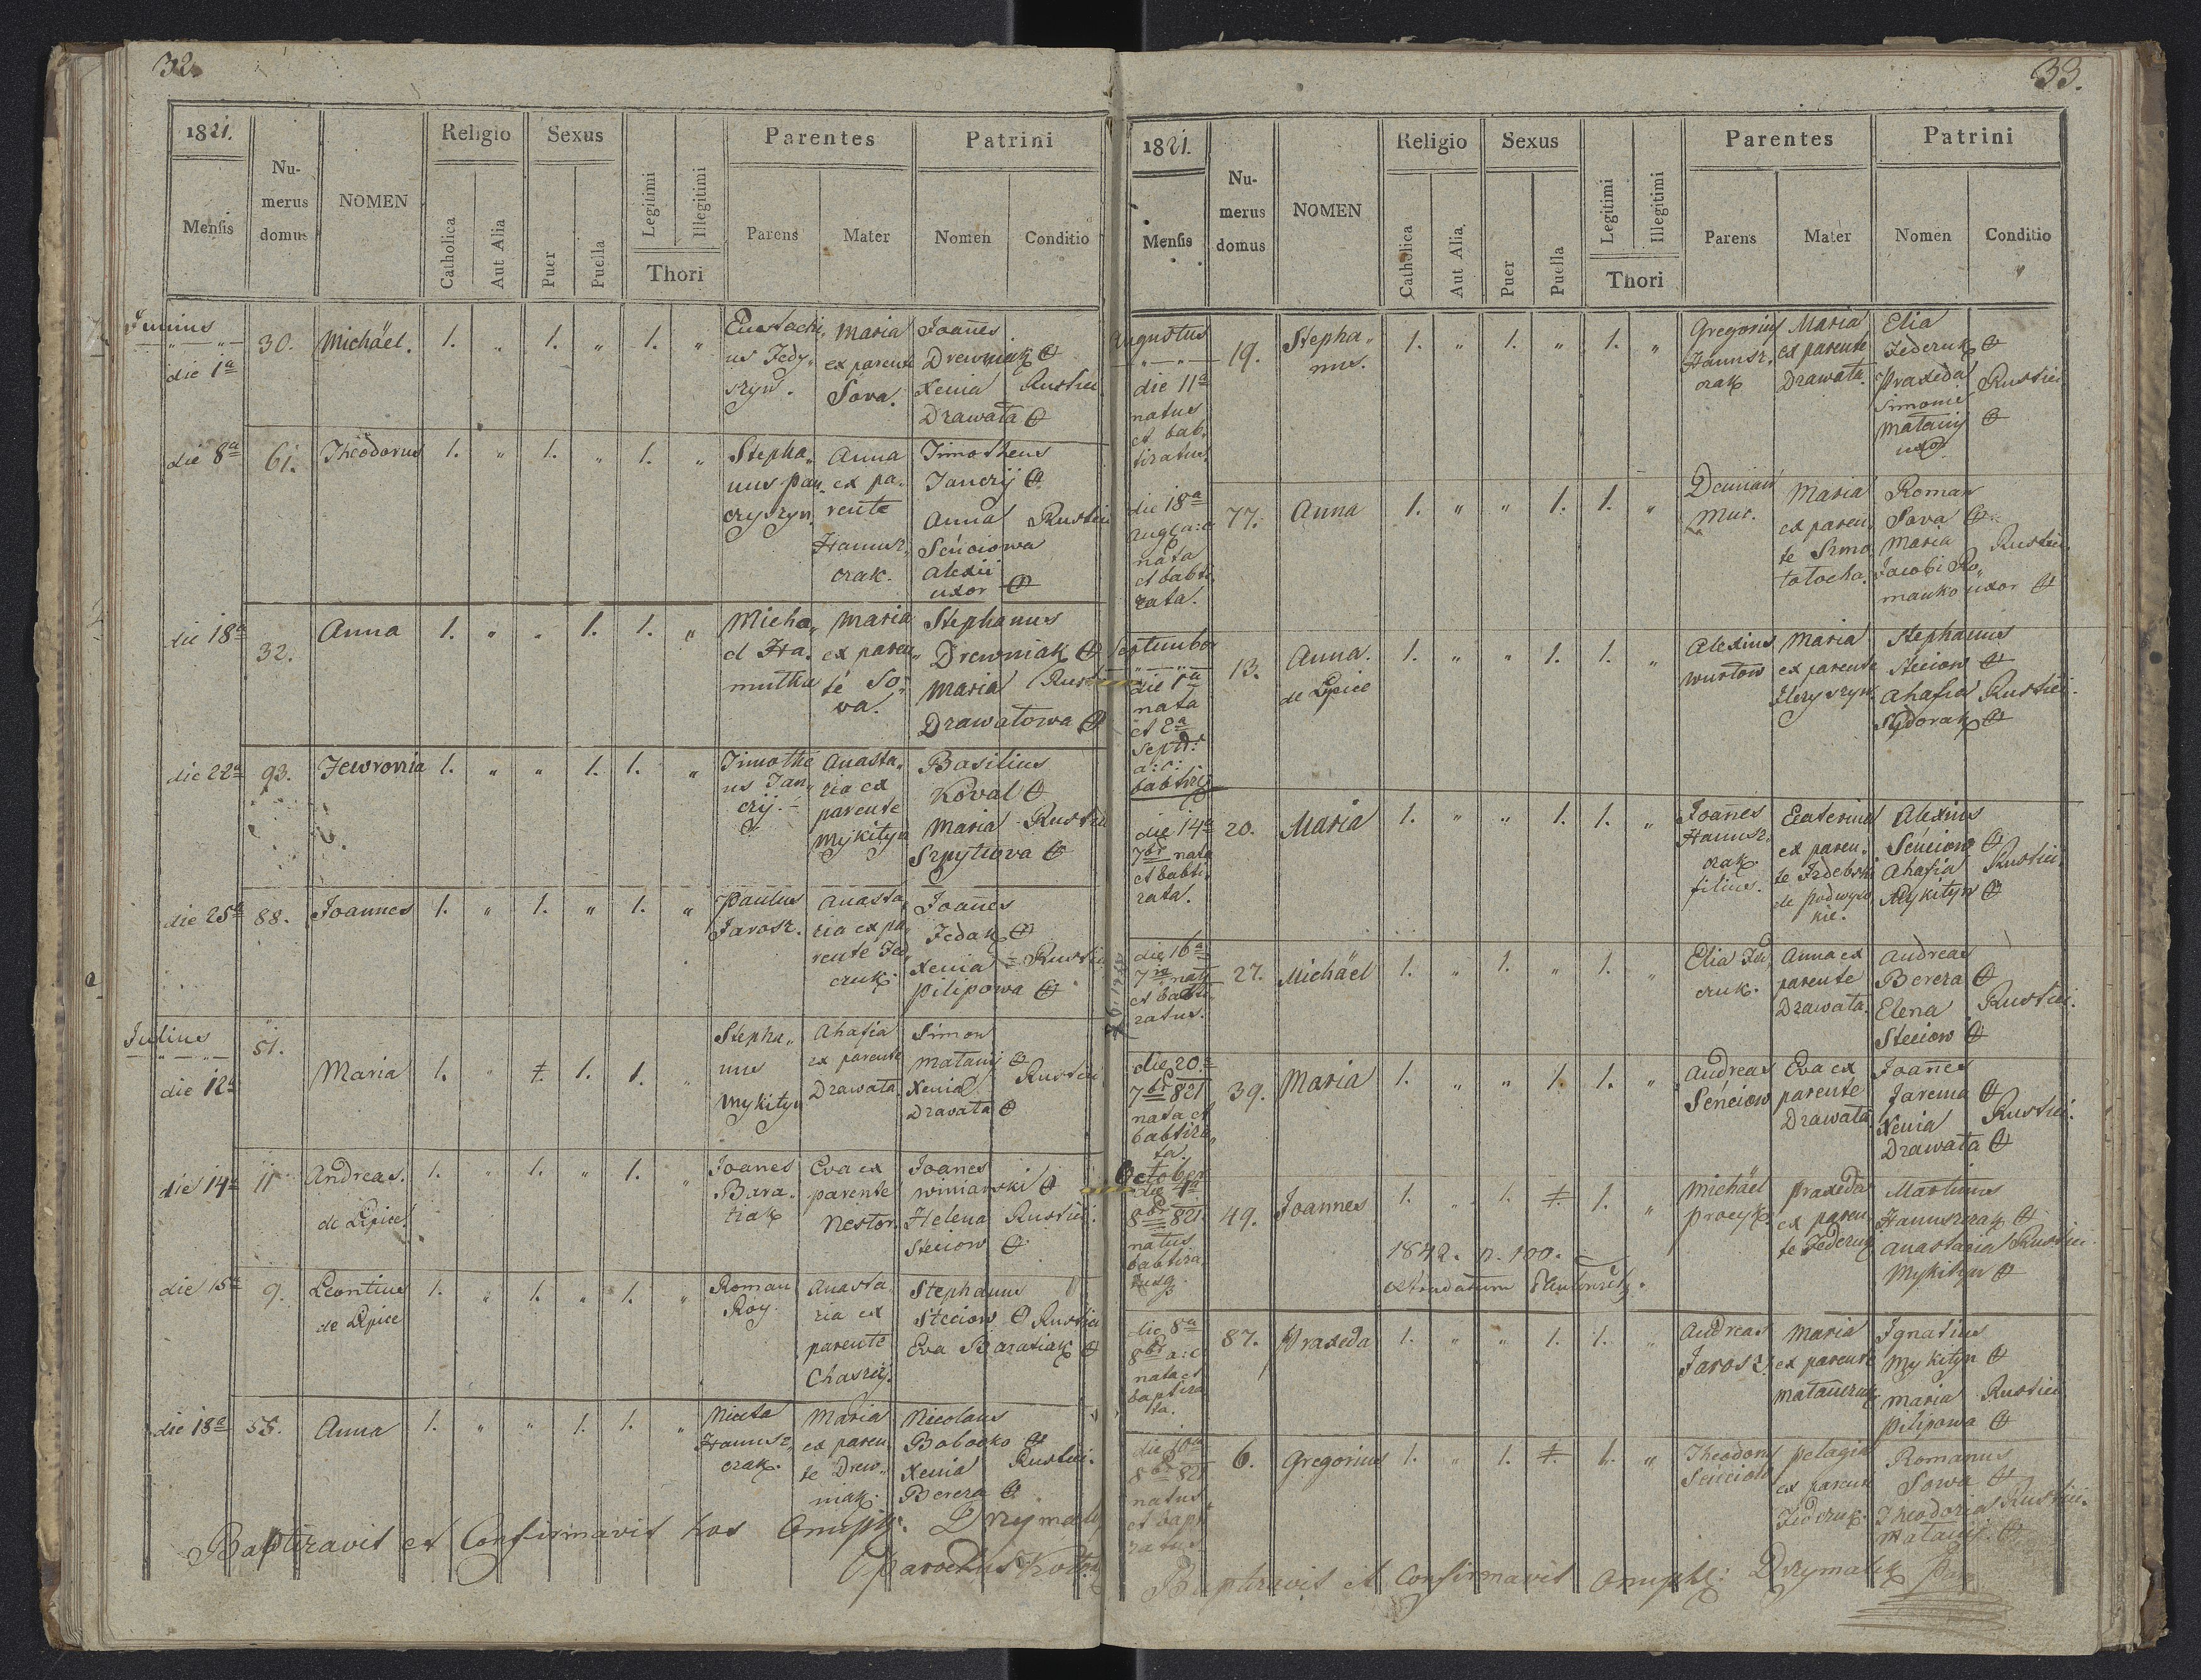 32.
1821.
Mensis
Nu-
merus
domus
NOMEN
Religio
Catholica
Aut Alia
Sexus
Puer
Puella
Legitimi
Illegitimi
Thori
Parentes
Parens
Mater
Patrini
Nomen
Conditio
Junius
die 1a
30.
Michäel.
1. „ 1. „ 1. „
Eustachi„
us Fedy„
szyn.
Maria
ex parente
Sova.
Joanes
Drewniak
Xenia Rustici
Drawata
die 8a
61.
Theodorus
1. „ 1. „ 1. „
Stepha„
nus Pan„
cryszyn
Anna
ex pa„
rente
Hanusz„
czak.
Timotheus
Janczij
Anna Rustici
Senciowa
Alexii
uxor
die 18a
32.
Anna
1. „ „ 1. 1. „
Micha„
el Ha„
mutka
Maria
ex paren„
te So„
va.
Stephanus
Drewniak
Maria Rust
Drawatowa
die 22a
93.
Fewronia
1. „ „ 1. 1. „
Timothe
us Jan„
czij.
Anasta„
zia ex
parente
Mykityn
Basilius
Koval
Maria Rustici
Szpytiova
die 25a
88.
Joannes
1. „ 1. „ 1. „
Paulus
Jarosz.
Anasta„
zia ex pa„
rente Fed„
czuk.
Joanes
Fedak
Xenia Rustici
Pilipowa
Julius
die 12a
51.
Maria
1. „ 1. 1. „
Stepha„
nus
Mykityn
Ahafia
ex parente
Drawata
Simon
Matanij
Xenia Rustici
Dravata
die 14a
11
Andreas.
de Lipice
1. „ 1. „ 1. „
Joanes
Bara„
tiak
Eva ex
parente
Nestor.
Joanes
Winiarski
Helena Rustici.
Steciow
die 15a
9.
Leontius
de Lipice
1. „ 1. „ 1. „
Roman
Roy.
Anasta„
zia ex
parente
Chaszij.
Stephanus
Steciow Rustici
Eva Baratiak
die 18a
55.
Anna
1. „ „ 1. 1. „
Niceta
Hanusz„
czak.
Maria
ex paren„
te Drew„
niak.
Nicolaus
Babaako
Xenia Rustici.
Bereza
Baptizavit et Confirmavit hos Onuph: Drymalik
Parochus
33.
1821.
Mensis
Nu-
merus
domus
NOMEN
Religio
Catholica
Aut Alia
Sexus
Puer
Puella
Legitimi
Illegitimi
Thori
Parentes
Parens
Mater
Patrini
Nomen
Conditio
Augustus
die 11a
natus
et bab„
tizatus
19.
Stepha„
nus.
1. „ 1. „ 1. „
Gregorius
Hanusz„
czak
Maria
ex parente
Drawata.
Elia
Federuk
Praxeda Rustici
Simonis
Matanij
uxor
die 18a
Aug: a: c
nata
et babti„
zata.
77.
Anna
1. „ „ 1. 1. „
Demian
Muc.
Maria
ex paren„
te Szmo
tolocha.
Roman
Sava
Maria Rustici
Jacobi Ro„
manko uxor
September
die 1a
nata
et 2a
Septb:
a: c:
babtiz
13.
Anna.
de Lipice
1. „ „ 1. 1. „
Alexius
Wustow
Maria
ex parente
Hryszyn
Stephanus
Steciow
Ahafia Rustici.
Sydorak
die 14a
7br nata
et babti„
zata.
20.
Maria
1. „ „ 1. 1. „
Joanes
Hanusz„
czak
filius.
Ecaterina
ex paren„
te Izdebski
de Podwyso
kie.
Alexius
Senciow
Ahafia Rustici
Mykityn
die 16a
7br nat
et babti„
zatus.
27.
Michäel
1. „ 1. „ 1. „
Elia Fed„
czuk.
Anna ex
parente
Drawata.
Andreas
Bereza
Elena Rustici.
Steciow
die 20a
7br 821
nata et
babtiza„
ta.
39.
Maria
1. „ „ 1. 1. „
Andreas
Senciow
Eva ex
parente
Drawata
Joanes
Jarema
Xenia Rustici.
Drawata
October
die 4a
8br 821.
natus
babtiza„
tusq
49.
Joannes
1. „ 1. 1. „
1842. n. 120.
Michäel
Procyk.
Praxeda
ex paren„
te Federuk
Martinus
Hanuszczak
Anastazia Rustici
Mykityn
die 8a
8br a: c
nata et
baptiza
ta.
87.
Praxeda
1. „ „ 1. 1. „
Andreas
Jarosz
Maria
ex parente
Matanczuk
Ignatius
Mykityn
Maria Rustici
Pilipowa
die 10a
8br 821
natus
et bapt
zatus
6.
Gregorius
1. „ 1. 1. „
Theodorus
Senciow
Pelagia
ex parente
Fedczuk.
Romanus
Sowa
Theodozia Rustici.
Matanij.
Baptizavit et Confirmavit Onuph: Drymalik Par